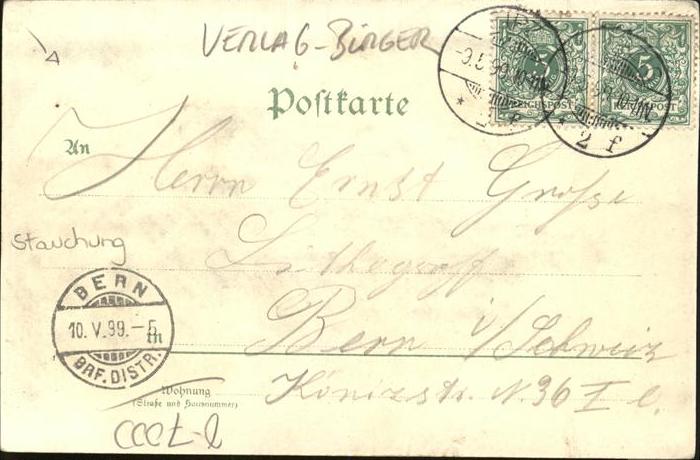 VERLAG-BÜRGER
-9.5.99.
5
REICHSPOST
2 f
Postkarte
An
Herrn Ernst Große
Stauchung
Lithograf
BERN
10.V.99.-5
BRF.DISTR.
Bern i/Schweiz
Wohnung
(Straße und Hausnummer)
Könizstr. N. 36 I l.